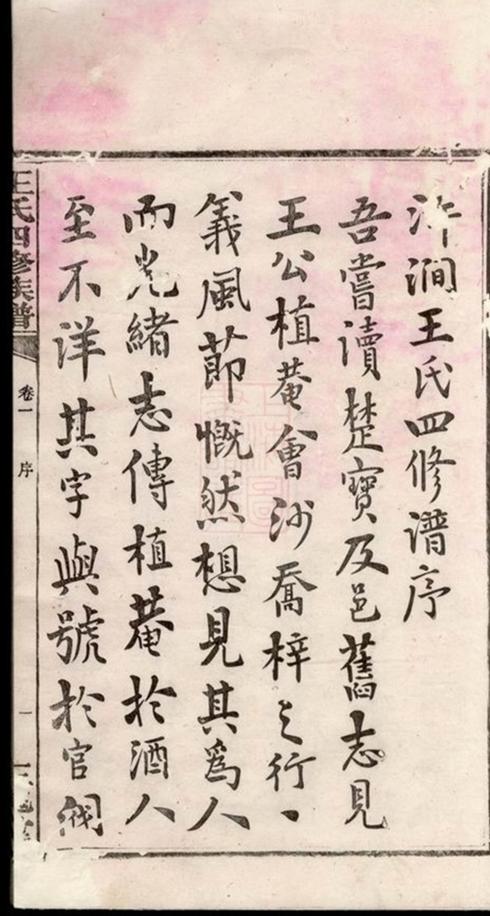 澗王氏四修譜序
吾嘗讀楚寶及邑舊志見
王公植菴會沙喬梓之行丶
義風節慨然想見其為人
而光緒志傳植菴於酒人
至不詳其字與號於官閥
王氏四修族譜
卷一
序
一